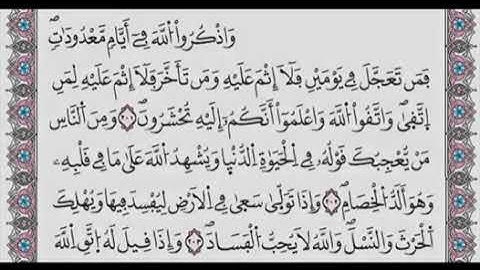 وَاذْكُرُواْ اللَّهَ فِي أَيَّامٍ مَّعْدُودَاتٍ
فَمَن تَعَجَّلَ فِي يَوْمَيْنِ فَلَا إِثْمَ عَلَيْهِ وَمَن تَأَخَّرَ فَلَا إِثْمَ عَلَيْهِ لِمَنِ
اِتَّقَى وَاتَّقُوا اللَّهَ وَاعْلَمُوا أَنَّكُمْ إِلَيْهِ تُحْشَرُونَ وَمِنَ النَّاسِ
مَنْ يُّعْجِبُكَ قَوْلُهُ فِي الْحَيَاةِ الدُّنْيَا وَيُشْهِدُ اللَّهَ عَلَى مَا فِي قَلْبِهِ
وَهُوَ أَلَدُّ الْخِصَامِ وَإِذَا تَوَلَّى سَعَى فِي الْأَرْضِ لِيُفْسِدَ فِيهَا وَيُهْلِكَ
الْحَرْثَ وَالنَّسْلَ وَاللَّهُ لَا يُحِبُّ الْفَسَادَ وَإِذَا قِيلَ لَهُ اتَّقِ اللَّهَ